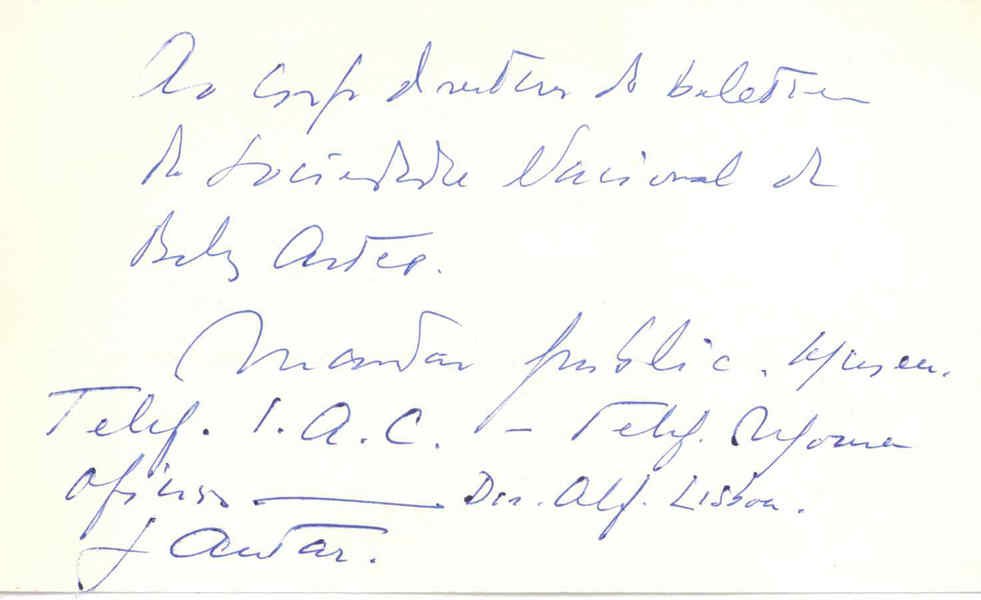 Ao Corpo directivo do boletim
da Sociedade Nacional de
Belas Artes.
Mandar public. Museu.
Telef. I.A.C. — Telef.
Dr. Alf. Lisboa.
Jantar.